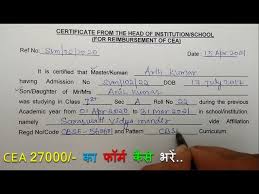 CERTIFICATE FROM THE HEAD OF INSTITUTION/SCHOOL
(FOR REIMBURSEMENT OF CEA)
Ref No: Svm/22/2020 Date : 15 Apr 2021
It is certified that Master/Kumari Arib Kumar
having Admission No Svm/02/22 DOB 17 July 2017
Son/Daughter of Mr/Mrs Anil Kumar
was studying in Class 7st Sec A Roll No 22 during the previous
Academic year from 01 Apr 2020 to 31 Mar 2021 in this school
namely Saraswati Vidya mandir vide Affiliation
Regd No/Code CBSE-56001 and Pattern CBS Curriculum.
CEA 27000/- का फॉर्म कैसे भरें..